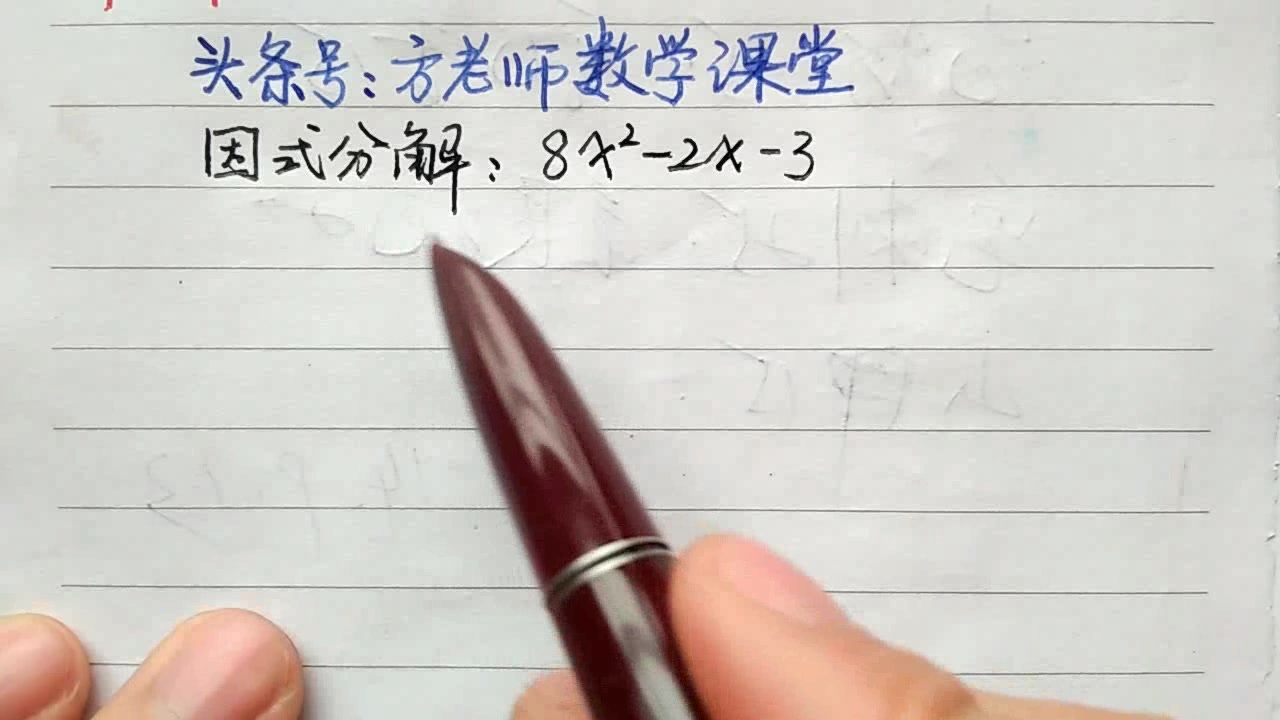 头条号：方老师数学课堂
因式分解：8x²-2x-3